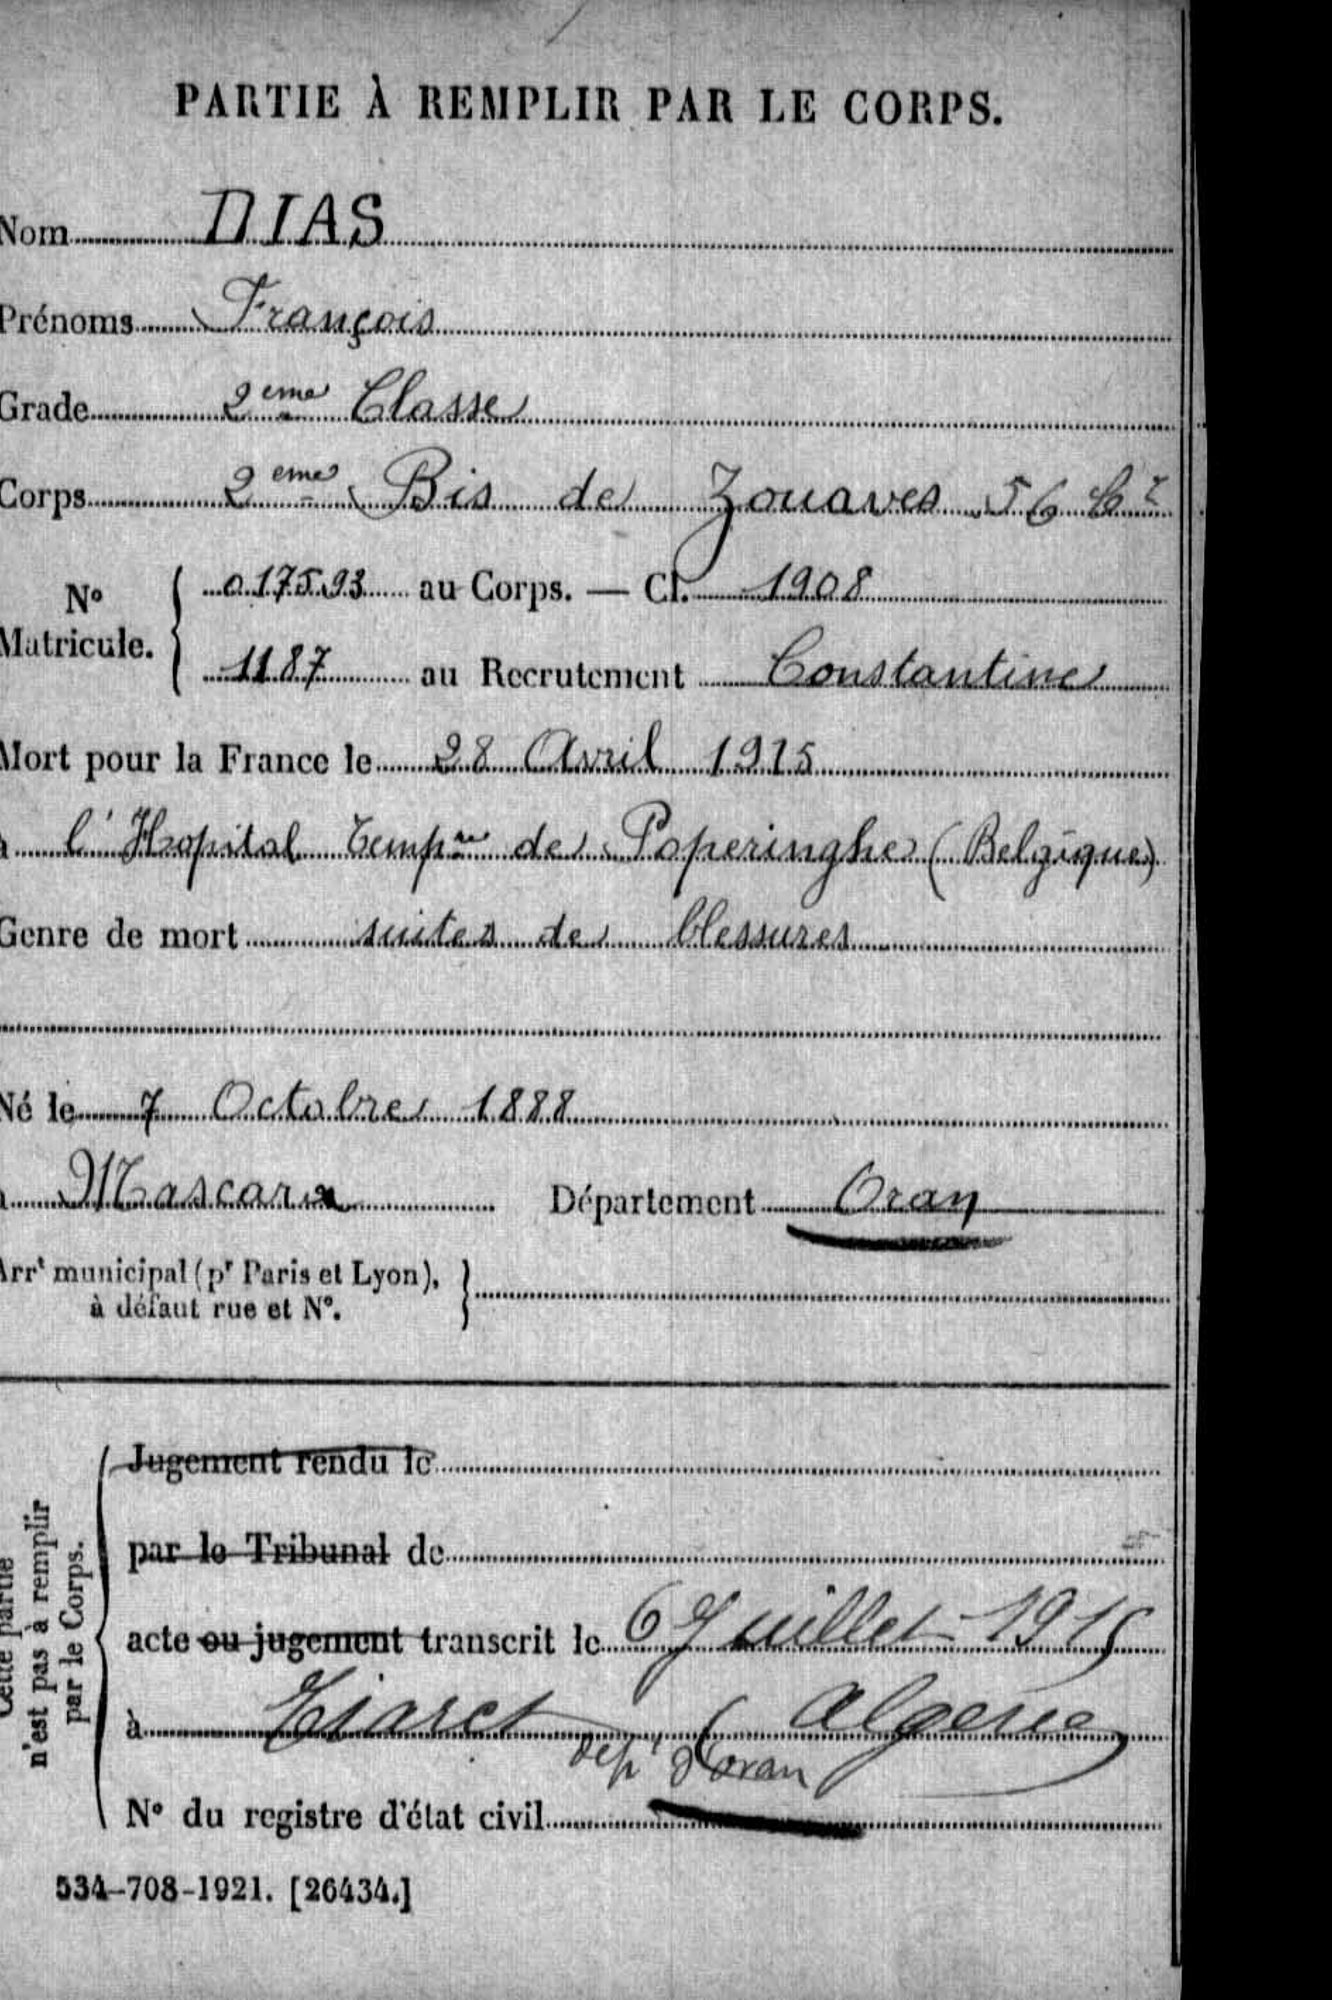 PARTIE À REMPLIR PAR LE CORPS.
Nom DIAS
Prénoms François
Grade 2eme Classe
Corps 2eme Bis de Zouaves 56
N° Matricule. { 017593 au Corps. — Cl. 1908
1187 au Recrutement Constantine
Mort pour la France le 28 Avril 1915
à l'Hopital Tempre de Poperinghe (Belgique)
Genre de mort suites de blessures
Né le 7 Octobre 1888
à Mascara Département Oran
Arrt municipal (pr Paris et Lyon),
à défaut rue et N°.
Cette partie
n'est pas à remplir
par le Corps.
Jugement rendu le
par le Tribunal de
acte ou jugement transcrit le 6 Juillet 1915
à Tiaret (Algerie)
dept d'Oran
N° du registre d'état civil
534-708-1921. [26434.]